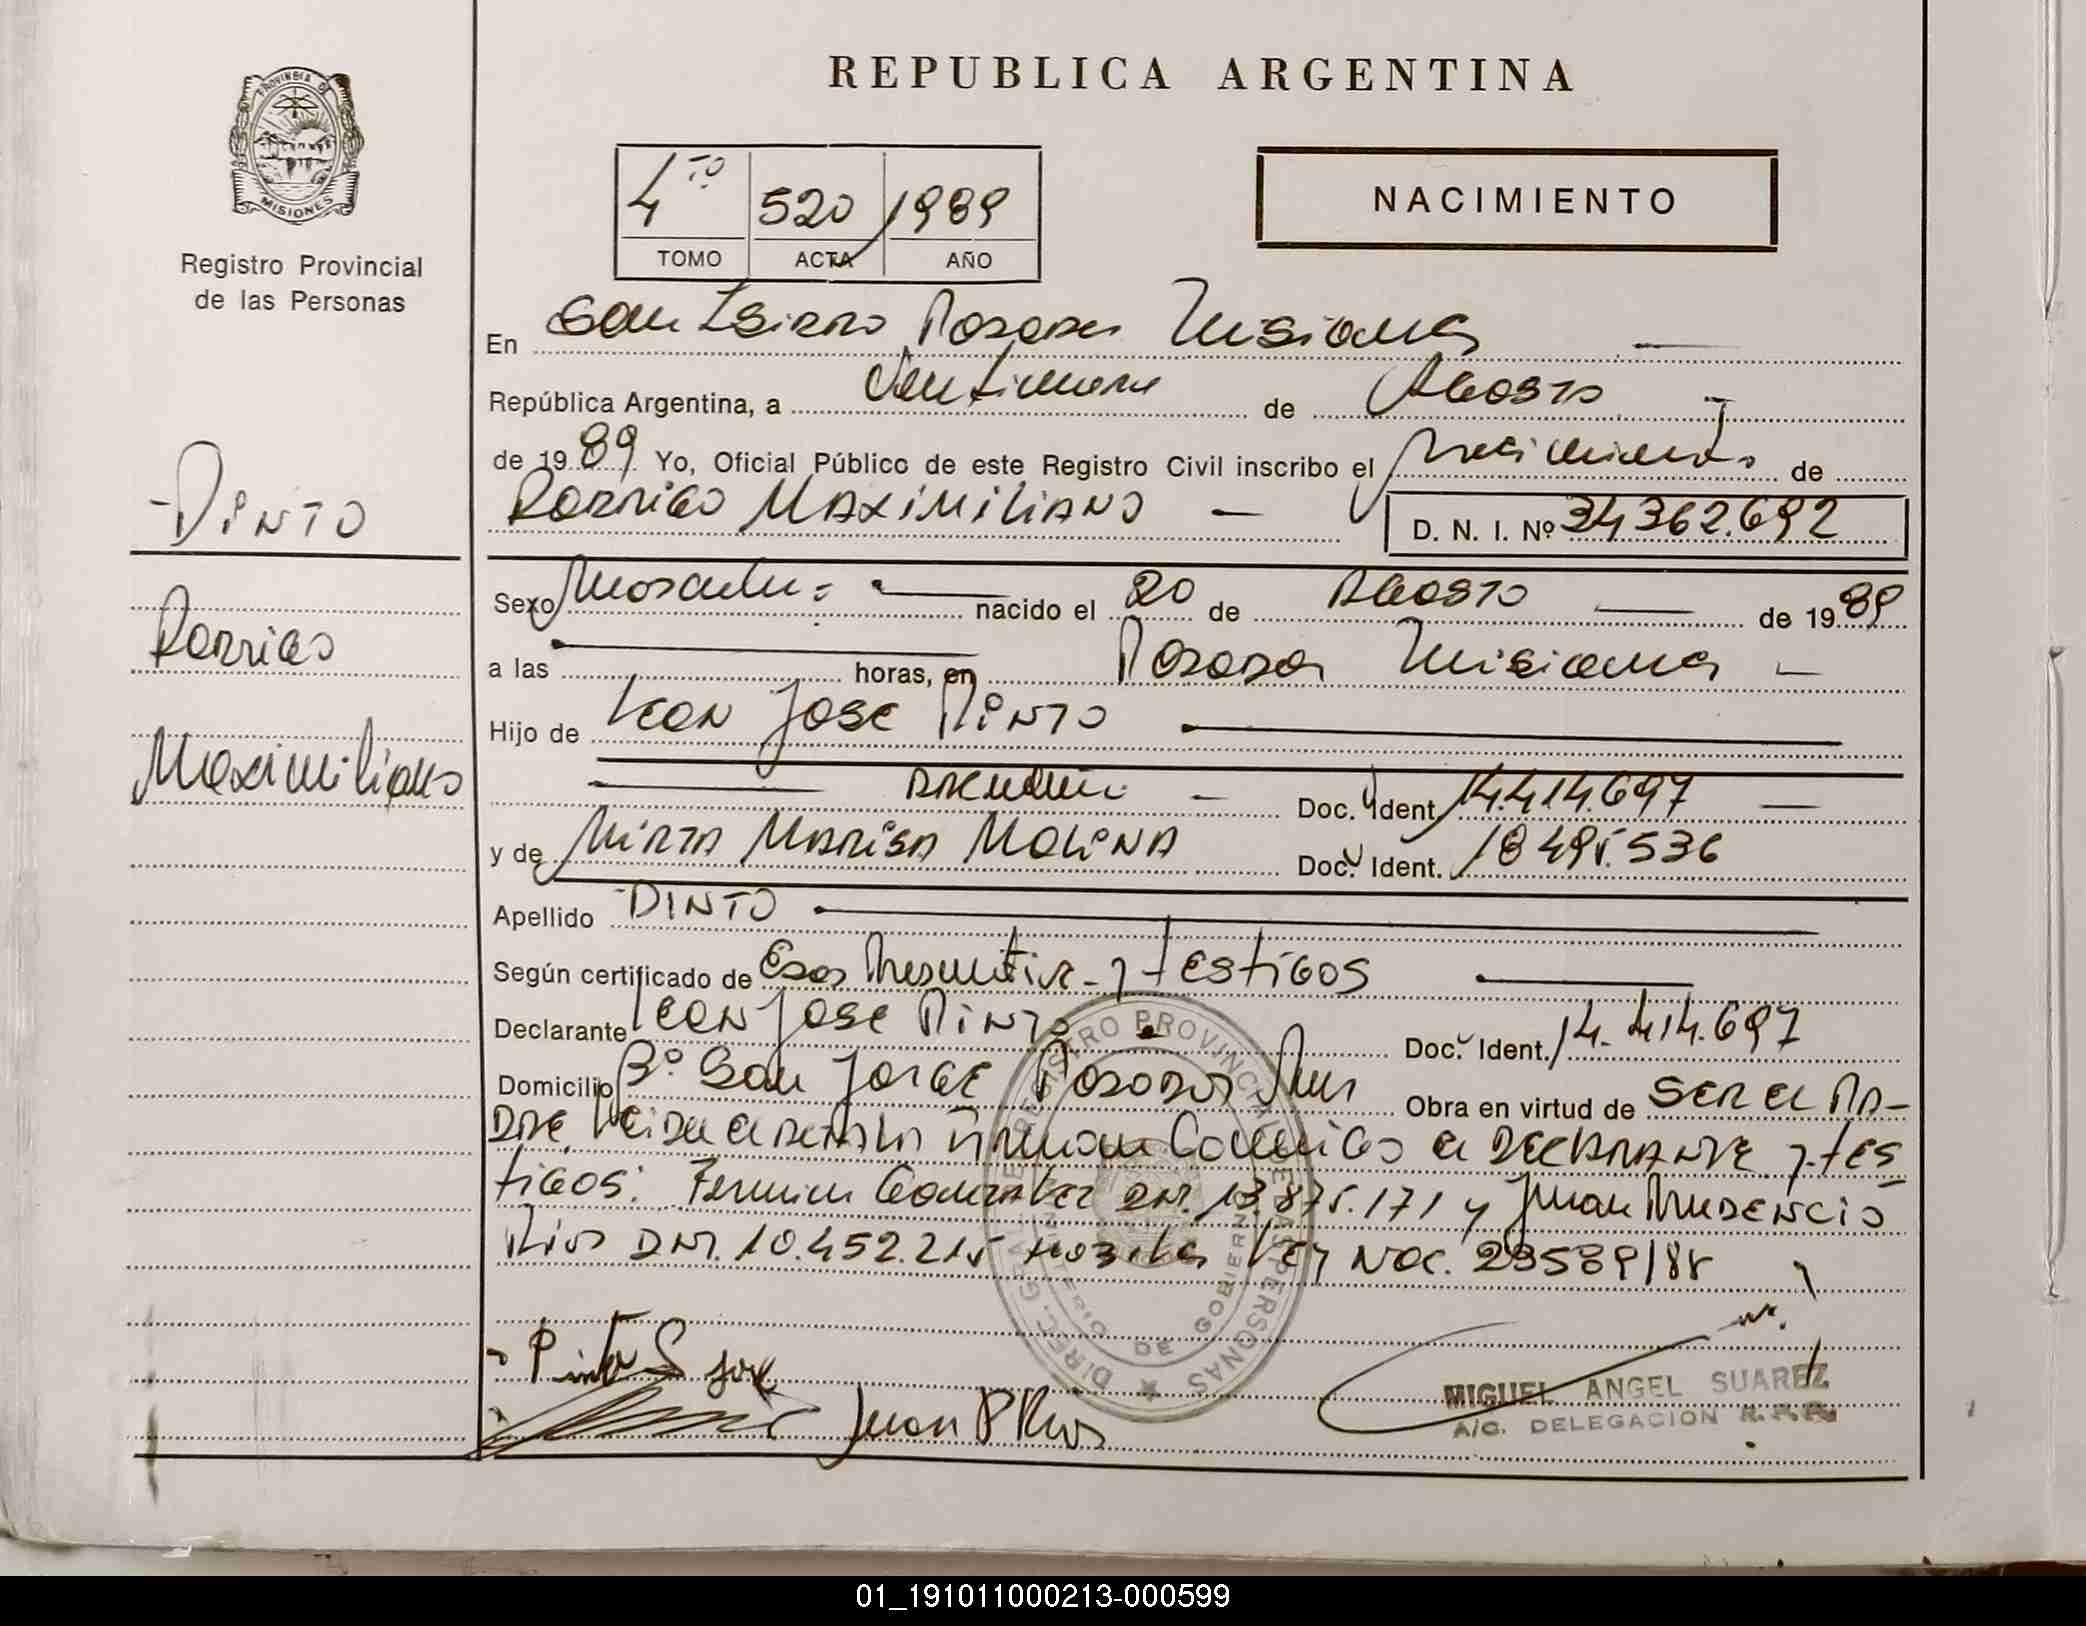 REPUBLICA ARGENTINA
PROVINCIA DE
MISIONES
Registro Provincial
de las Personas
4TO 520 1989
TOMO ACTA AÑO
NACIMIENTO
En San Isidro Posadas Misiones
República Argentina, a de Agosto
de 1989 Yo, Oficial Público de este Registro Civil inscribo el Nacimiento de
Rodrigo Maximiliano
D. N. I. Nº 34362.692
PINTO
Rodrigo
Maximiliano
Sexo Masculino nacido el 20 de Agosto de 1989
a las horas, en Posadas Misiones
Hijo de Leon Jose Pinto
Argentino Doc. Ident. 14.414.697
y de Mirta Marisa Molina Doc. Ident. 18 495.536
Apellido PINTO
Según certificado de testigos
Declarante Leon Jose Pinto Doc. Ident. 14.414.697
Domicilio Bº San Jorge Posadas Mnes Obra en virtud de ser el Pa-
dre Leida el acta la firman Conmigo el Declarante y tes
tigos: Fermin Gonzalez DNI. 13.875.171 y Juan Prudencio
Rios DNI. 10.452.215 Ley Nac. 23589/88
DIREC. GRAL. DE REGISTRO PROVINCIAL DE LAS PERSONAS
MINISTERIO DE GOBIERNO
Pinto L Jose
Juan P Rios
MIGUEL ANGEL SUAREZ
A/C. DELEGACION R.P.P.
01_191011000213-000599